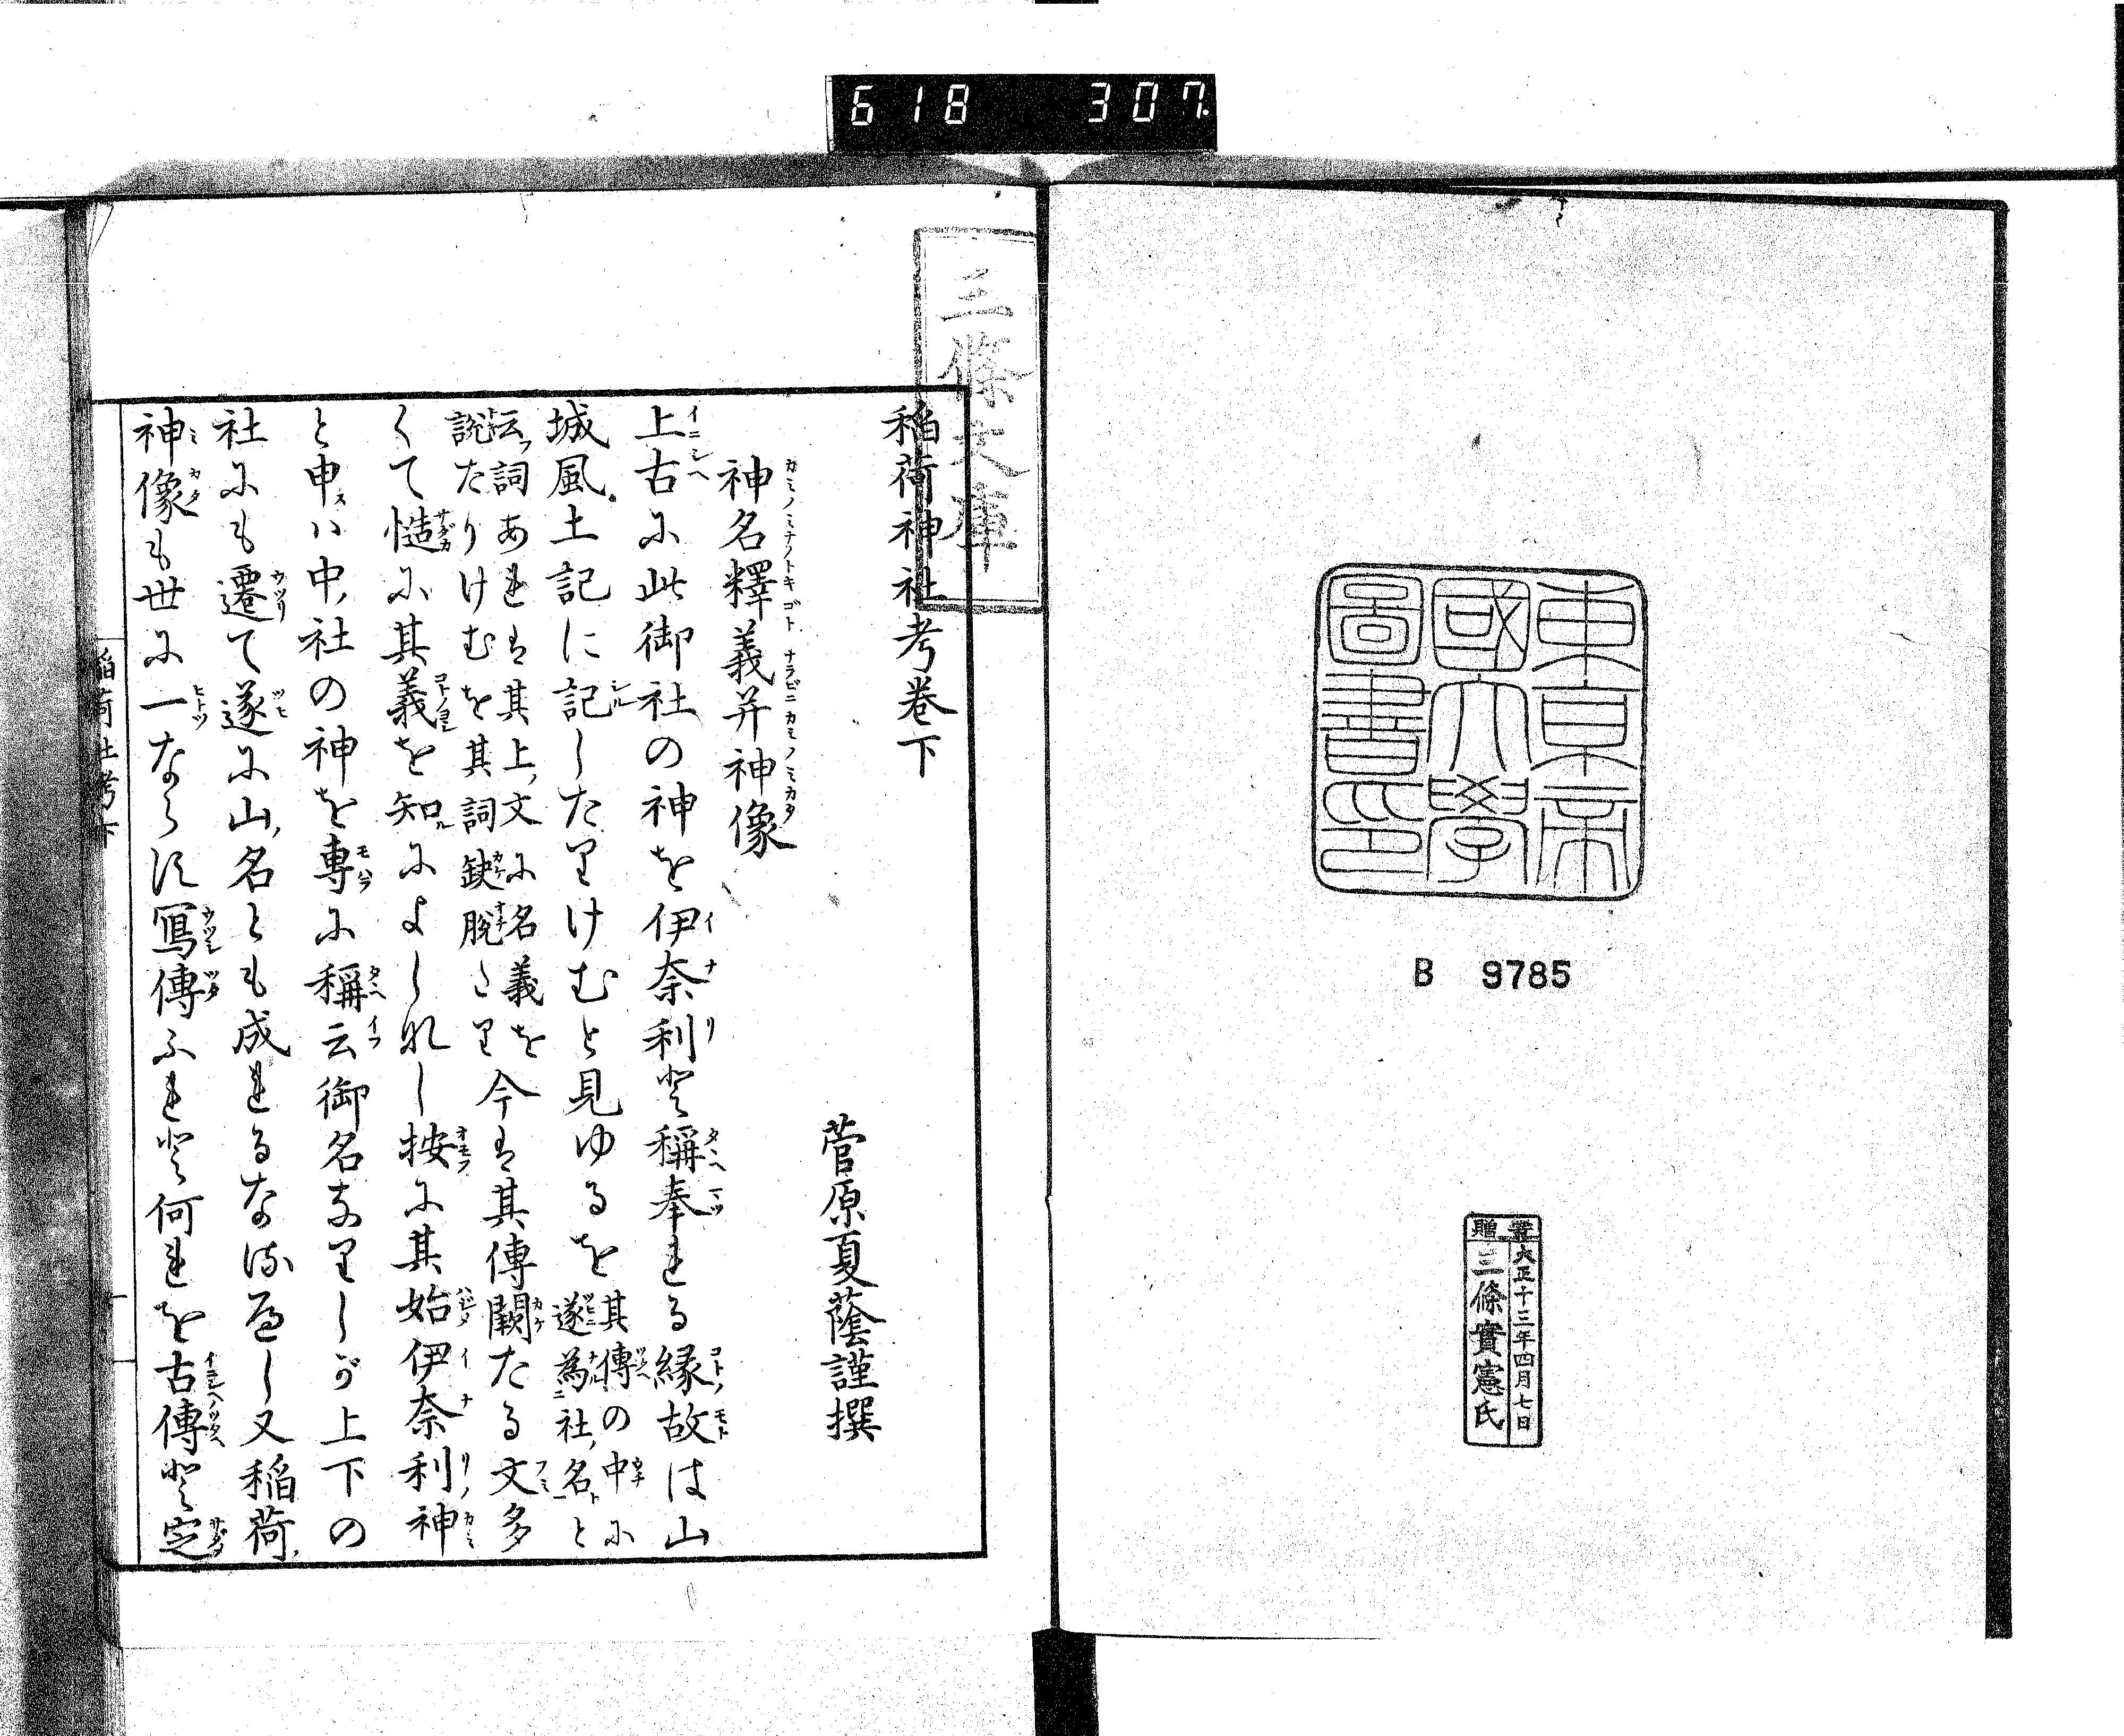 618 307
東京帝
國大學
圖書印
B 9785
寄贈
大正十三年四月七日
三條實憲氏
三條文庫
稲荷神社考巻下
菅原夏蔭謹撰
神名釋義并神像
カミノミナノトキゴト ナラビニカミノミカタ
上古に此御社の神を伊奈利と稱奉れる縁故は山
城風土記に記したりけむと見ゆるを其傳の中に
遂為社名と
云詞あれば其上文に名義を
説たりけむを其詞缺脱たり今は其傳闕たる文多
くて慥に其義を知によしなし按に其始伊奈利神
と申スハ中社の神を專に稱云御名なりしが上下の
社にも遷て遂に山名とも成れるなるべし又稲荷
神像も世に一ならず寫傳ふれど何れを古傳と定
稲荷社考下